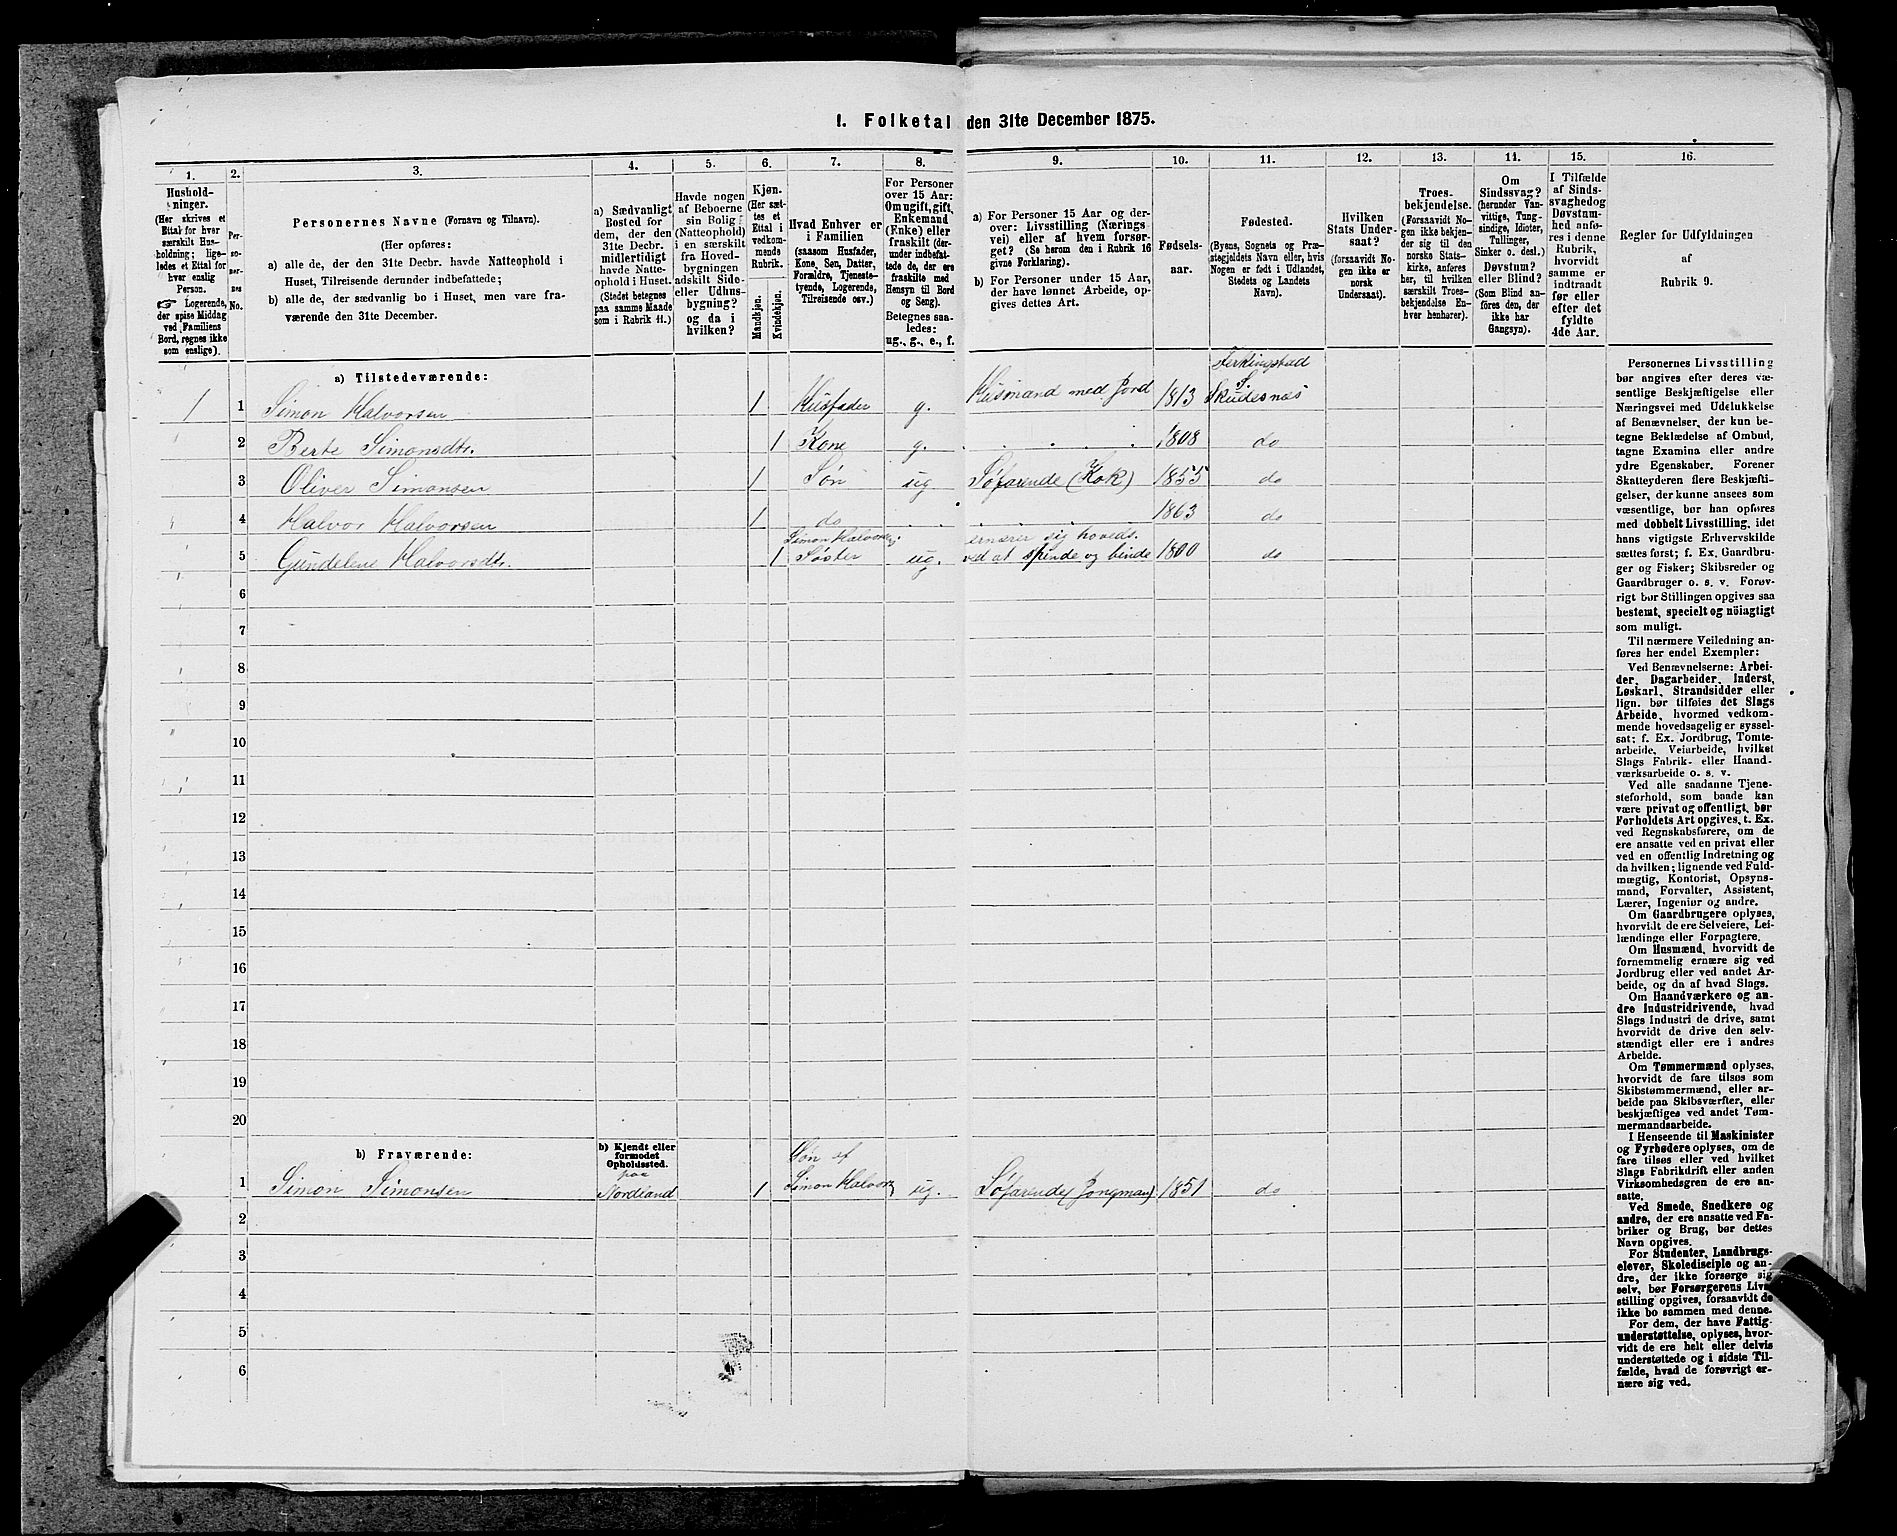 1. Folketal den 31te December 1875.
1. 2. 3. 4. 5. 6. 7. 8. 9. 10. 11. 12. 13. 14. 15. 16.
Hushold-
ninger.
(Her skrives et
Ettal for hver
særskilt Hus-
holdning; lige-
ledes et Ettal for
hver enslig
Person.
☞ Logerende,
der spise Middag
ved Familiens
Bord, regnes ikke
som enslige).
Per-
so-
ner-
nes
No.
Personernes Navne (Fornavn og Tilnavn).
(Her opføres:
a) alle de, der den 31te Decbr. havde Natteophold i
Huset, Tilreisende derunder indbefattede;
b) alle de, der sædvanlig bo i Huset, men vare fra-
værende den 31te December.
a) Sædvanligt
Bosted for
dem, der den
31te Decbr.
midlertidigt
havde Natte-
ophold i Huset.
(Stedet betegnes
paa samme Maade
som i Rubrik 11.)
Havde nogen
af Beboerne
sin Bolig
(Natteophold)
i en særskilt
fra Hoved-
bygningen
adskilt Side-
eller Udhus-
bygning?
og da i
hvilken?
Kjøn.
(Her sæt-
tes et
Ettal i
vedkom-
mende
Rubrik.
Mandkjøn.
Kvindekjøn.
Hvad Enhver er
i Familien
(saasom Husfader,
Kone, Søn, Datter,
Forældre, Tjeneste-
tyende, Logerende,
Tilreisende osv.)
For Personer
over 15 Aar:
Om ugift, gift,
Enkemand
(Enke) eller
fraskilt (der-
under indbefat-
tede de, der ere
fraskilte med
Hensyn til Bord
og Seng).
Betegnes saa-
ledes:
ug., g., e., f.
a) For Personer 15 Aar og der-
over: Livsstilling (Nærings
vei) eller af hvem forsør-
get? (Se herom den i Rubrik 16
givne Forklaring).
b) For Personer under 15 Aar,
der have lønnet Arbeide, op-
gives dettes Art.
Fødsels-
aar.
Fødested.
(Byens, Sognets og Præ-
stegjeldets Navn eller, hvis
Nogen er født i Udlandet,
Stedets og Landets
Navn).
Hvilken
Stats Under-
saat?
(forsaavidt No-
gen ikke er
norsk
Undersaat).
Troes-
bekjendelse.
(Forsaavidt No-
gen ikke bekjen-
der sig til den
norske Stats-
kirke, anføres
her, til hvilken
særskilt Troes-
bekjendelse En-
hver henhører).
Om
Sindssvag?
(herunder Van-
vittige, Tung-
sindige, Idioter,
Tullinger,
Sinker o. desl.)
Døvstum?
eller Blind?
(Som Blind an-
føres den, der
ikke har
Gangsyn).
I Tilfælde
af Sinds-
svaghed og
Døvstum-
hed anfø-
res i denne
Rubrik,
hvorvidt
samme er
indtraadt
før eller
efter det
fyldte
4de Aar.
Regler før Udfyldningen
af
Rubrik 9.
a) Tilstedeværende:
1 1 Simon Halvorsen 1 Husfader g. Husmand med Jord 1813 Ferkingstad S. Skudesnæs
2 Berte Simonsdtr. 1 Kone g. . . . . 1808 do
3 Oliver Simonsen 1 Søn ug Søfarende (Kok) 1855 do
4 Halvor Halvorsen 1 do . . . . 1863 do
5 Gundelene Halvorsdtr. 1 Simon Halvors. Søster ug. ernærer sig hoveds. ved at spinde og binde 1800 do
6
7
8
9
10
11
12
13
14
15
16
17
18
19
20
b) Fraværende:
b) Kjendt eller
formodet
Opholdssted.
1 Simon Simonsen paa Nordland 1 Søn af Simon Halvors. ug. Søfarende (Jongman) 1851 do
2
3
4
5
6
Personernes Livsstilling
bør angives efter deres væ-
sentlige Beskjæftigelse eller
Næringsvei med Udelukkelse
af Benævnelser, der kun be-
tegne Beklædelse af Ombud,
tagne Examina eller andre
ydre Egenskaber. Forener
Skatteyderen flere Beskjæfti-
gelser, der kunne ansees som
væsentlige, bør han opføres
med dobbelt Livsstilling, idet
hans vigtigste Erhvervskilde
sættes først; f. Ex. Gaardbru-
ger og Fisker; Skibsreder og
Gaardbruger o. s. v. Forøv-
rigt bør Stillingen opgives saa
bestemt, specielt og nöiagtigt
som muligt.
Til nærmere Veiledning an-
føres her endel Exempler:
Ved Benævnelserne: Arbei-
der, Dagarbeider, Inderst,
Løskarl, Strandsidder eller
lign. bør tilføies det Slags
Arbeide, hvormed vedkom-
mende hovedsagelig er syssel-
sat; f. Ex. Jordbrug, Tomte-
arbeide, Veiarbeide, hvilket
Slags Fabrik- eller Haand-
værksarbeide o. s. v.
Ved alle saadanne Tjene-
steforhold, som baade kan
være privat og offentligt, bør
Forholdets Art opgives, t. Ex.
ved Regnskabsførere, om de
ere ansatte ved en privat eller
ved en offentlig Indretning og
da hvilken; lignende ved Fuld-
mægtig, Kontorist, Opsyns-
mand, Forvalter, Assistent,
Lærer, Ingeniør og andre.
Om Gaardbrugere oplyses,
hvorvidt de ere Selveiere, Lei-
lændinge eller Forpagtere.
Om Husmænd, hvorvidt de
fornemmelig ernære sig ved
Jordbrug eller ved andet Ar-
beide, og da af hvad Slags.
Om Haandværkere og an-
dre Industridrivende, hvad
Slags Industri de drive, samt
hvorvidt de drive den selv-
stændigt eller ere i andres
Arbeide.
Om Tømmermænd oplyses,
hvorvidt de fare tilsøs som
Skibstømmermænd, eller ar-
beide paa Skibsværfter, eller
beskjæftiges ved andet Tøm-
mermandsarbeide.
I Henseende til Maskinister
og Fyrbødere oplyses, om de
fare tilsøs eller ved hvilket
Slags Fabrikdrift eller anden
Virksomhedsgren de ere an-
satte.
Ved Smede, Snedkere og
andre, der ere ansatte ved Fa-
briker og Brug, bør dettes
Navn opgives.
For Studenter, Landbrugs-
elever, Skoledisciple og an-
dre, der ikke forsørge sig
selv, bør Forsørgerens Livs-
stilling opgives, forsaavidt de
ikke bo sammen med denne.
For dem, der have Fattig-
understøttelse, oplyses, hvor-
vidt de ere helt eller delvis
understøttede og i sidste Til-
fælde, hvad de forøvrigt er-
nære sig ved.